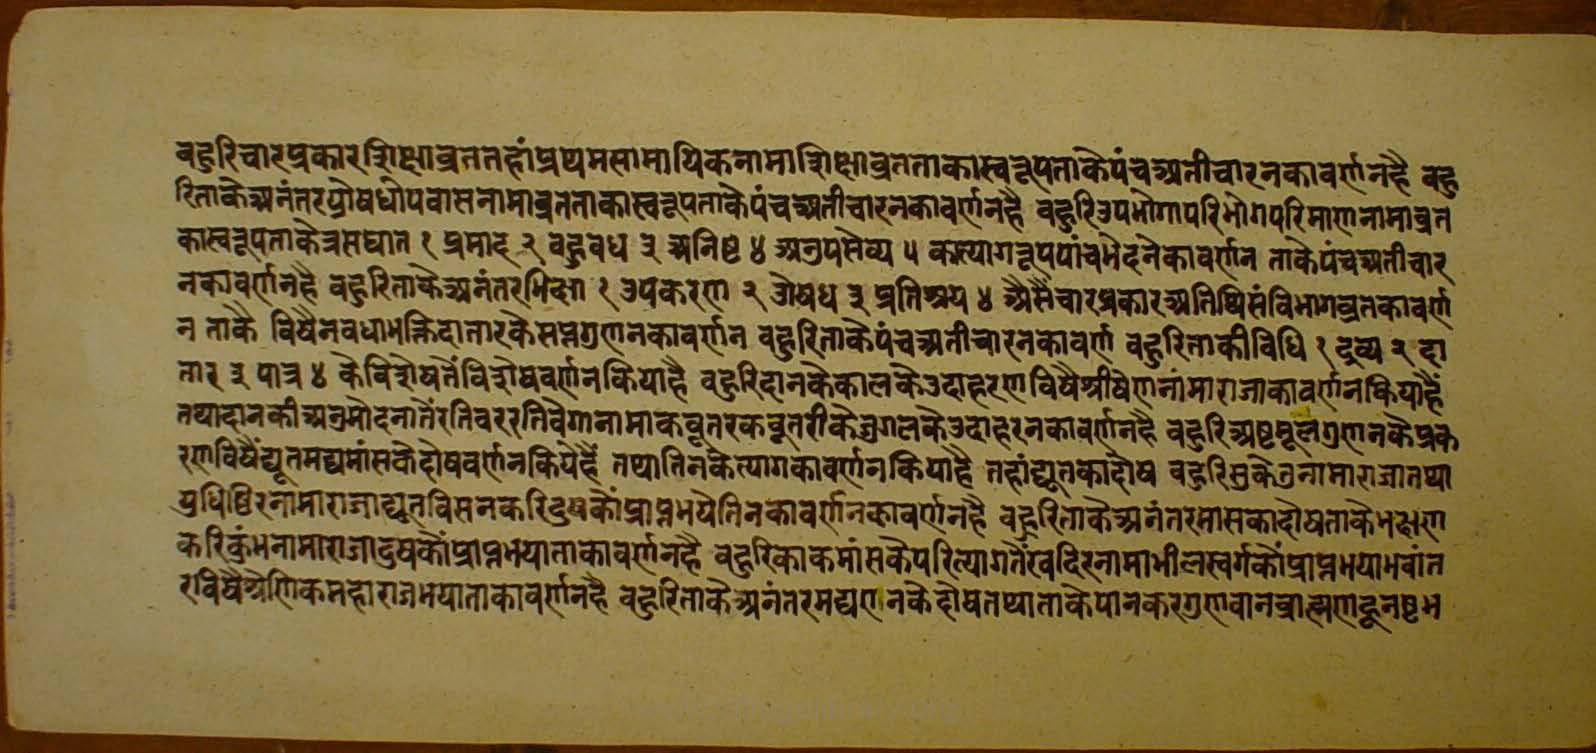 वहुरिचारप्रकारशिक्षाव्रततहांप्रथमसामायिकनामाशिक्षाव्रतताकास्वरूपताकेपंचअतीचारनकावर्णनहै वहु
रिताकैअनंतरप्रौषधोपवासनामाव्रतताकास्वरूपताकैपंचअतीचारनकावर्णनहै वहुरिउपभोगापरिभोगपरिमाणनामाव्रत
कास्वरूपताकैत्रसघात १ प्रमाद २ वहुवध ३ अनिष्ट ४ अनुपसेव्य ५ कात्यागरूपपांचभेदनेकावर्णन ताकैपंचअतीचार
नकावर्णनहै वहुरिताकैअनंतरभिक्षा १ उपकरण २ औषध ३ प्रतिश्रय ४ अैसैचारप्रकारअतिथिसंविभागव्रतकावर्ण
न ताकै विषैनवधाभक्तिदातारकैसप्तगुणनकावर्णन वहुरिताकैपंचअतीचारनकावर्ण वहुरिताकीविधि १ द्रव्य २ दा
तार ३ पात्र ४ कैविशेषतैंविशेषवर्णनकियाहै वहुरिदानकैकालकैउदाहरणविषैश्रीषेणनांमाराजाकावर्णनकियाहैं
तथादानकीअनुमोदनातैंरतिवररतिवेगानामाकवूतरकवूतरीकैजुगलकैउदाहरनकावर्णनहै वहुरिअष्टमूलगुणनकैप्रक
रणविषैंद्यूतमद्यमांसकैदोषवर्णनकियेहैं तथातिनकैत्यागकावर्णनकियाहै तहांद्यूतकादोष वहुरिसुकेतुनामाराजातथा
युधिष्ठिरनामाराजाद्यूतविसनकरिदुषकौंप्राप्तभयेतिनकावर्णनकावर्णनहै वहुरिताकैअनंतरमासकादोषताकैभक्षण
करिकुंभनामाराजादुषकौंप्राप्तभयाताकावर्णनहै वहुरिकाकमांसकैपरित्यागतैंखदिरनामाभीलस्वर्गकौंप्राप्तभयाभवांत
रविषैश्रेणिकमहाराजभयाताकावर्णनहै वहुरिताकैअनंतरमद्यपानकैदोषतथाताकैपानकरगुणवानव्राह्मणहूनष्टभ